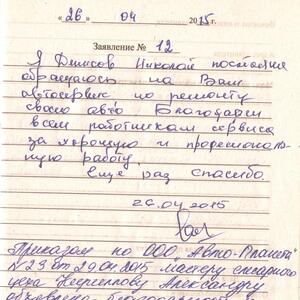 « 26 » 04 2015г.
Заявление № 12
Я Денисов Николай постоянно
обращаюсь на Ваш
автосервис по ремонту
своего авто Благодарен
всем работникам сервиса
за хорошую и професиональ-
ную работу.
Еще раз спасибо.
26.04.2015
Приказом по ООО "Авто-Планета"
№ 23 от 29.04.2015 мастеру слесарного
цеха Александру
объявлена благодарность